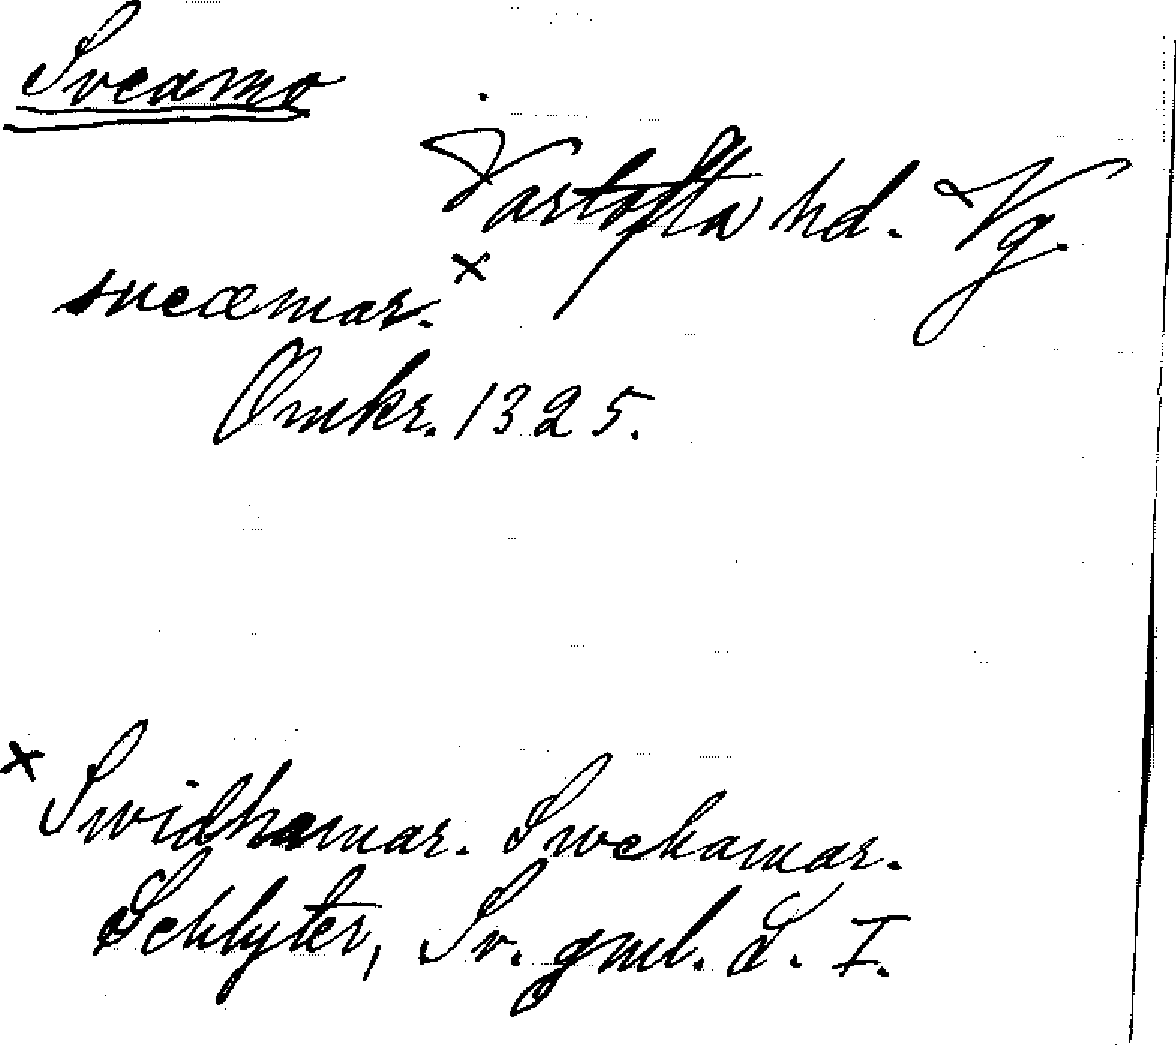 Sveamo
Vartofta hd. Vg.
sueæmar. x
Omkr. 1325.
x Swidhamar. Swehamar.
Schlyter, Sv. gml. L. I.